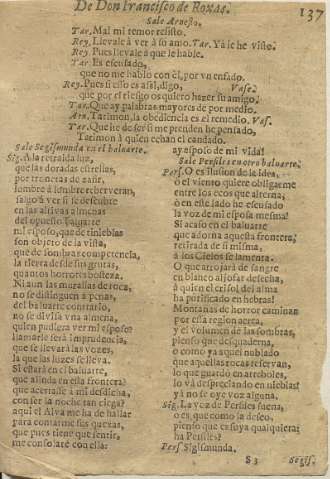 De Don Francisco de Roxas.
137
Sale Arnesto.
Tar. Mal mi temor resisto.
Rey. Llevale à vèr à su amo. Tar. Yà le he visto.
Rey. Pues llevale à que le hable.
Tar. Es escusado,
que no me hablo con èl, por un enfado.
Rey. Pues si esso es assi, digo, Vase.
que por el riesgo os quiero hazer su amigo.
Tar. Que ay palabras mayores de por medio.
Arn. Tarimon, la obediencia es el remedio. Vas.
Tar. Que he de ser si me prenden he pensado,
Tarimon à quien echan el candado.
Sale Segismunda en el baluarte.
Sig. A la retraida luz,
que las doradas estrellas,
por troneras de zafir,
hombre à hombre reberveran,
salgo à ver si se descubre
en las altivas almenas
del opuesto baluarte
mi esposo, que de tinieblas
son objeto de la vista,
que de sombras competencia,
la esfera desde sus grutas,
quantos horrores bosteza.
Ni aun las murallas de roca,
no se distinguen à penas,
del baluarte contrario,
no se divisa vna almena,
quien pudiera ver mi esposo?
llamarle serà imprudencia,
que se llevarà las vozes,
la que las luzes se lleva.
Si estarà en el baluarte,
que alinda en esta frontera?
que acertasse à mi desdicha,
con ser la noche tan ciega?
aqui el Alva me ha de hallar
para contarme sus quexas,
que pues tiene que sentir,
me consolarè con ella:
ay esposo de mi vida!
Sale Persiles en otro baluarte.
Pers. O es ilusion de la idea,
ò el viento quiere obligarme
entre los ecos que alterna;
ò en este lado he escuchado
la voz de mi esposa mesma!
Si acaso en el baluarte
que adorna aquella frontera,
retirada de si misma,
à los Cielos se lamenta.
O que arrojarà de sangre
en blanco aljofar desecha,
à quien el crisol del alma
ha purificado en hebras!
Montañas de horror caminan
por essa region aerea,
y el volumen de las sombras,
pienso que desquaderna,
o como ya aquel nublado
que aquellas rocas reservan,
lo que guardò en arreboles,
lo và despreclando en nieblas!
yà no se oye voz alguna.
Sig. La voz de Persiles suena,
ò es, que como la deseo,
pienso que es suya qualquiera:
ha Persiles?
Pers. Sigismunda.
S 3
Segis.